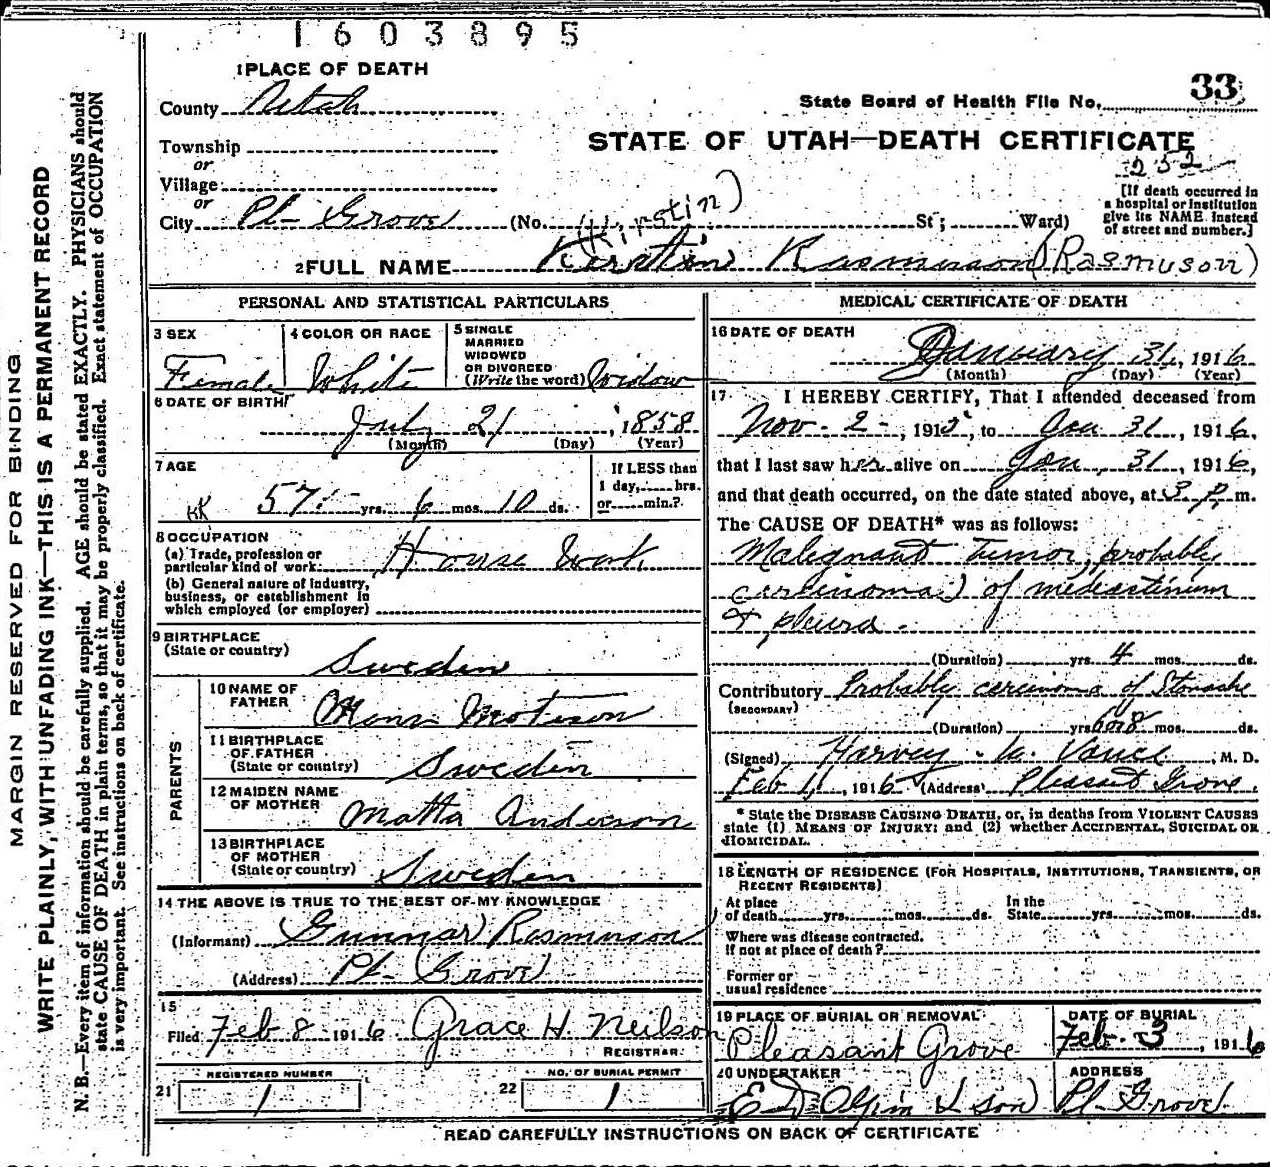 1603895
1 PLACE OF DEATH
County Utah
Township
or
Village
or
City Pl- Grove (No. St; Ward)
State Board of Health File No. 33
STATE OF UTAH—DEATH CERTIFICATE
252
[If death occurred in
a hospital or institution
give its NAME instead
of street and number.]
(Kirstin)
2 FULL NAME Kirstin Rasmusson (Rasmuson)
PERSONAL AND STATISTICAL PARTICULARS
3 SEX
Female
4 COLOR OR RACE
White
5 SINGLE
MARRIED
WIDOWED
OR DIVORCED
(Write the word) Widow
6 DATE OF BIRTH
July 21, 1858
(Month) (Day) (Year)
7 AGE
KK 57 yrs. 6 mos. 10 ds.
If LESS than
1 day, hrs.
or min.?
8 OCCUPATION
(a) Trade, profession or
particular kind of work: House Work
(b) General nature of industry,
business, or establishment in
which employed (or employer)
9 BIRTHPLACE
(State or country)
Sweden
PARENTS
10 NAME OF
FATHER
Mons
11 BIRTHPLACE
OF FATHER
(State or country) Sweden
12 MAIDEN NAME
OF MOTHER Matta Anderson
13 BIRTHPLACE
OF MOTHER
(State or country) Sweden
14 THE ABOVE IS TRUE TO THE BEST OF MY KNOWLEDGE
(Informant) Gunnar Rasmusson
(Address) Pl- Grove
15
Filed Feb 8 1916 Grace H. Neilson
REGISTRAR
REGISTERED NUMBER
21 1
NO. OF BURIAL PERMIT
22 1
MEDICAL CERTIFICATE OF DEATH
16 DATE OF DEATH
January 31, 1916
(Month) (Day) (Year)
17 I HEREBY CERTIFY, That I attended deceased from
Nov. 2 -, 1915, to Jan 31, 1916,
that I last saw her alive on Jan. 31, 1916,
and that death occurred, on the date stated above, at 3 P. m.
The CAUSE OF DEATH* was as follows:
Malegnant Tumor, probably
carcinoma) of mediastinum
& pleura.
(Duration) yrs. 4 mos. ds.
Contributory Probably carcinoma of Stomache
(SECONDARY)
(Duration) yrs 6 or 8 mos. ds.
(Signed) Harvey Vance, M. D.
Feb 11, 1916 (Address) Pleasant Grove.
* State the DISEASE CAUSING DEATH, or, in deaths from VIOLENT CAUSES
state (1) MEANS OF INJURY; and (2) whether ACCIDENTAL, SUICIDAL OR
HOMICIDAL.
18 LENGTH OF RESIDENCE (FOR HOSPITALS, INSTITUTIONS, TRANSIENTS, OR
RECENT RESIDENTS)
At place
of death yrs. mos. ds.
In the
State yrs. mos. ds.
Where was disease contracted.
If not at place of death?
Former or
usual residence
19 PLACE OF BURIAL OR REMOVAL
Pleasant Grove
DATE OF BURIAL
Feb. 3, 1916
20 UNDERTAKER
E D Olpin & son
ADDRESS
Pl- Grove
READ CAREFULLY INSTRUCTIONS ON BACK OF CERTIFICATE
MARGIN RESERVED FOR BINDING
WRITE PLAINLY, WITH UNFADING INK—THIS IS A PERMANENT RECORD
N. B.—Every item of information should be carefully supplied. AGE should be stated EXACTLY. PHYSICIANS should
state CAUSE OF DEATH in plain terms, so that it may be properly classified. Exact statement of OCCUPATION
is very important. See instructions on back of certificate.